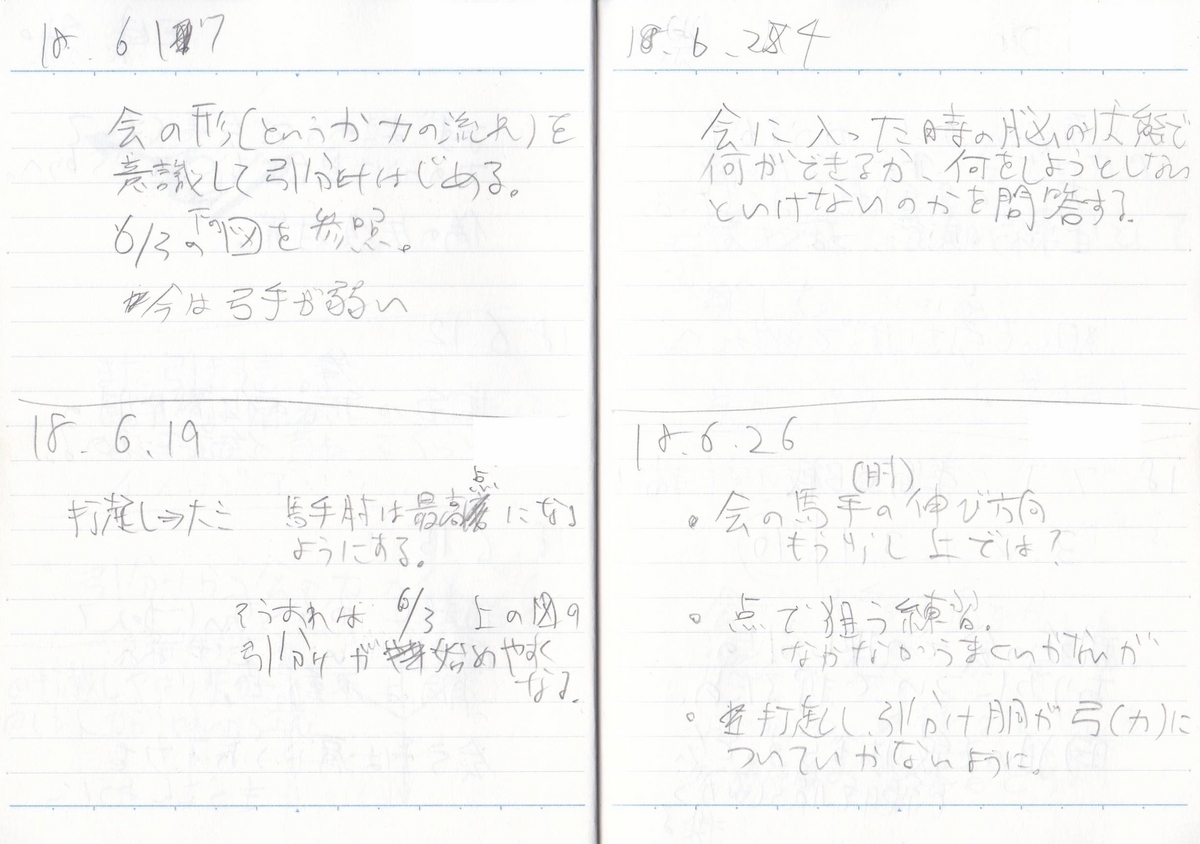 18. 6 17
会の形(というか力の流れ)を
意識して引分けはじめる。
6/3の下の図を参照。
今は弓手が弱い
18. 6. 19
打起し⇒たこ 馬手肘は最高点になる
ようにする。
そうすれば 6/3 上の図の
引分けが始めやすく
なる。
18. 6. 24
会に入った時の脳の状態で
何ができるか、何をしようとしない
といけないのかを問答する。
18. 6. 26
・会の馬手(肘)の伸び方向
もう少し上では?
・点で狙う練習。
なかなかうまくいかないが
・打起し、引分け胴が弓(力)に
ついていかないように。